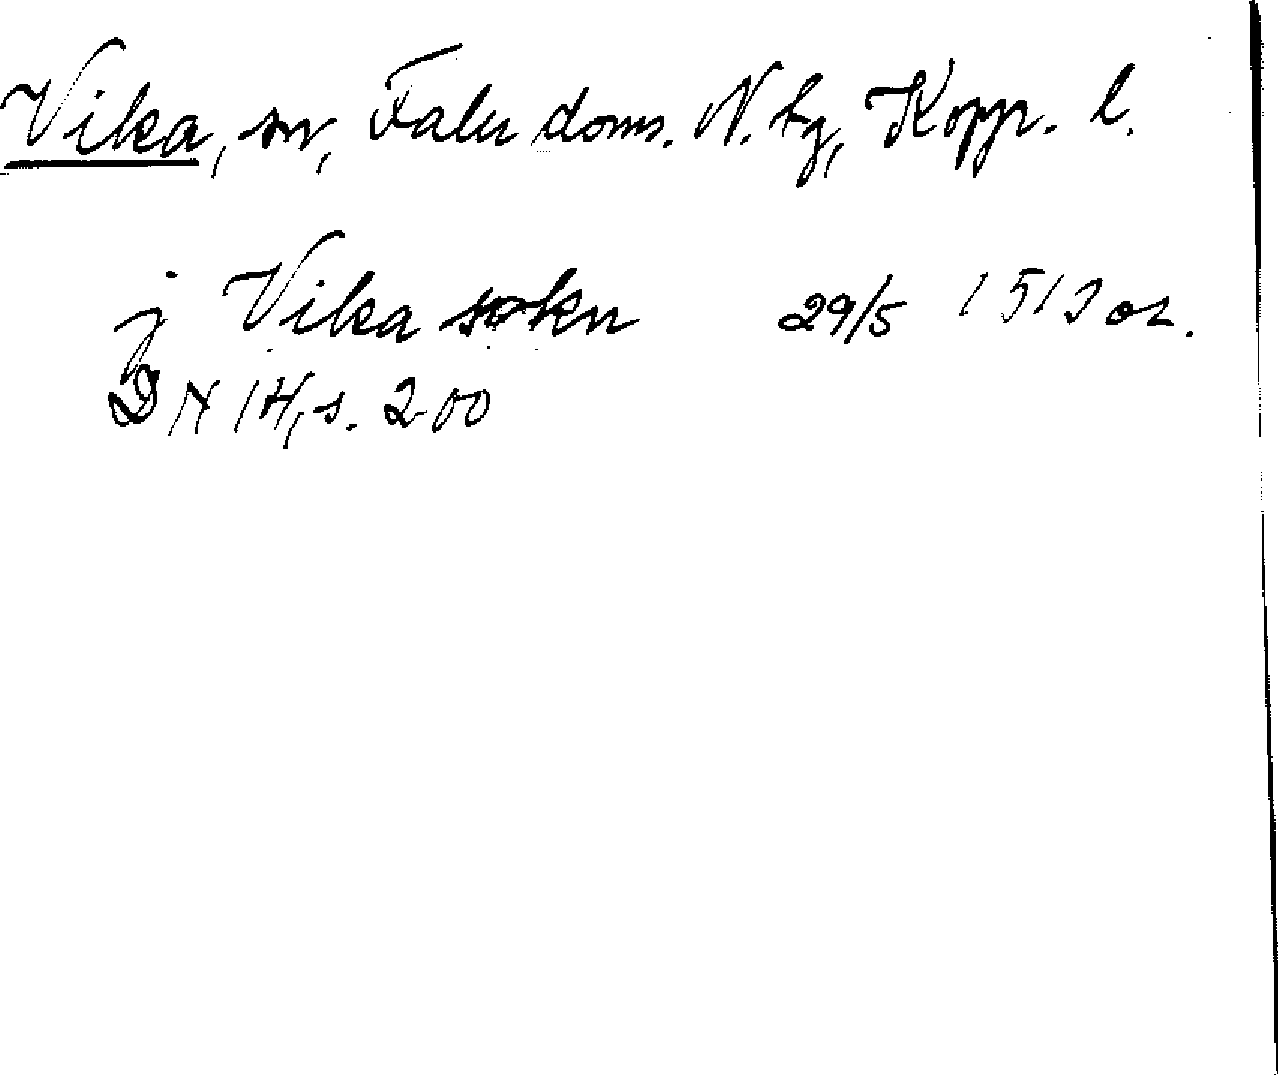 Vika, sn, Falu doms. N. tg, Kopp. l.
j Vika sokn 29/5 1513 or.
DN 14, s. 200